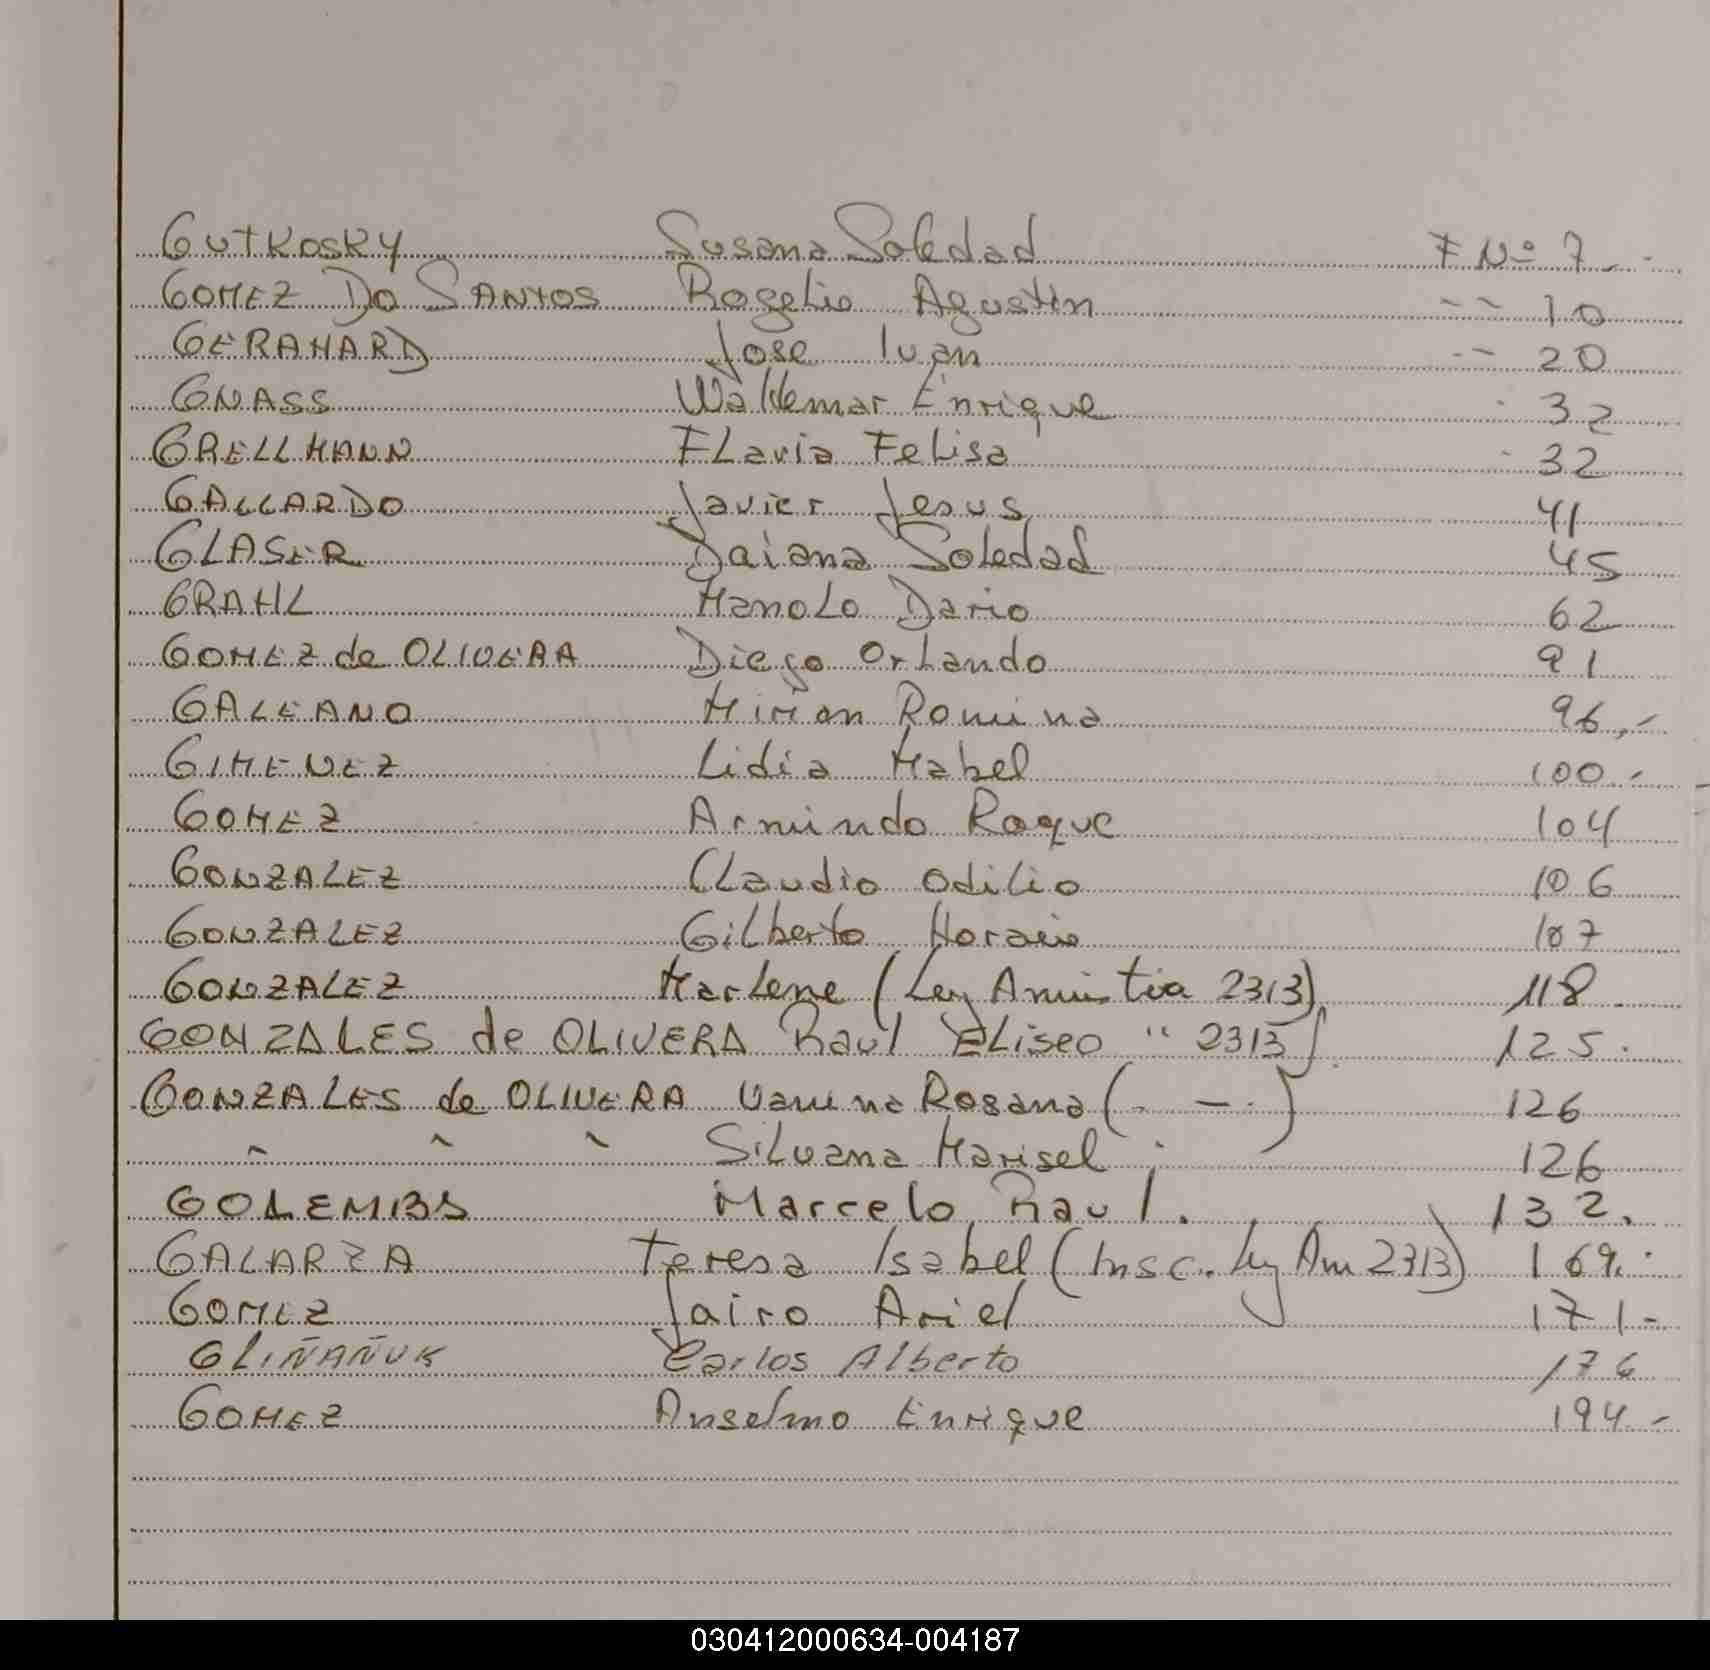 GUTKOSKY Susana Soledad F Nº 7.-
GOMEZ DO SANTOS Rogelio Agustin -- 10
GERAHARD Jose Ivan -- 20
GNASS Waldemar Enrique - 32
GRELLMANN FLavia FeLisa - 32
GALLARDO Javier Jesus 41
GLASER Daiana Soledad 45
GRAHL ManoLo Dario 62
GOMEZ de OLIVERA Diego OrLando 91
GALEANO Mirian Romina 96,-
GIMENEZ Lidia Mabel 100.-
GOMEZ Armindo Roque 104
GONZALEZ CLaudio Odilio 106
GONZALEZ GiLberto Horacio 107
GONZALEZ MarLene (Ley Amnistia 2313) 118
GONZALES de OLIVERA Raul ELiseo " 2313) 125.
GONZALES de OLIVERA Vanina Rosana ( - ) 126
" " " SiLvana Marisel 126
GOLEMBS Marcelo Raul. 132.
GALARZA Teresa Isabel (Insc. Ley Am 2313) 169.
GOMEZ Jairo Ariel 171-
GLIÑAÑUK Carlos Alberto 176
GOMEZ Anselmo Enrique 194-
030412000634-004187